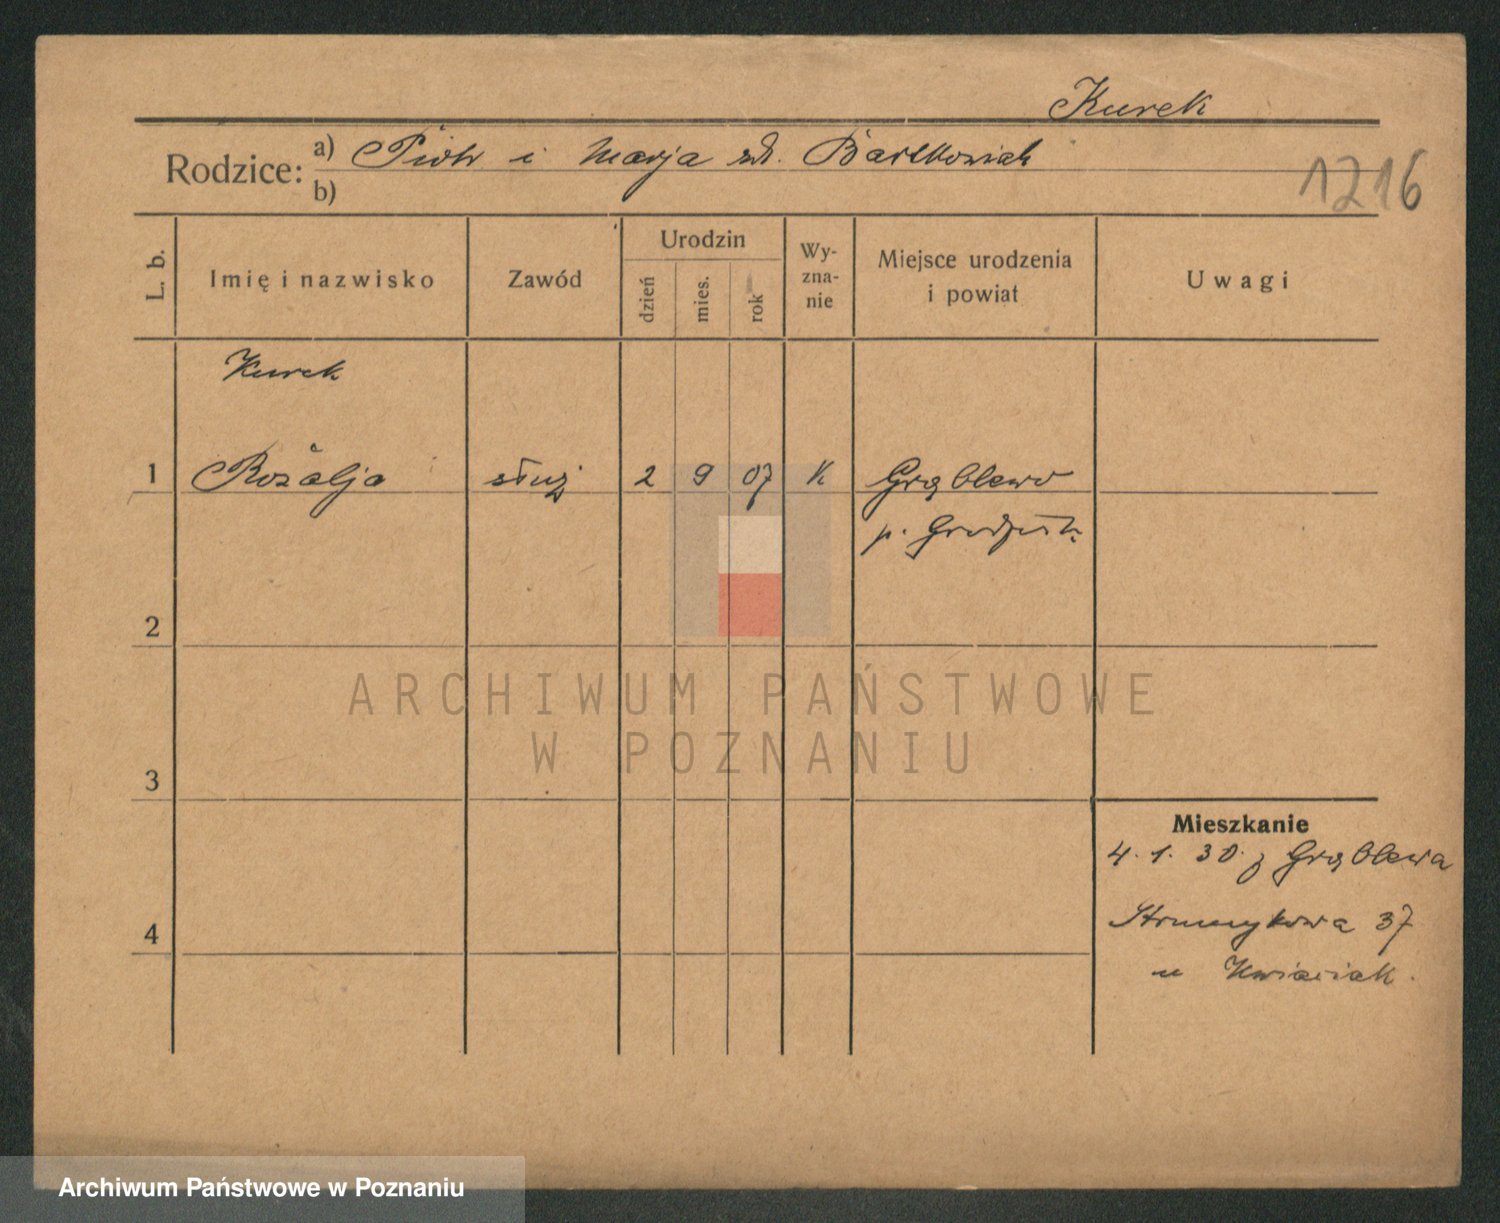 Kurek
Rodzice: a) Piotr i Marja zd. Bartkowiak
b)
1216
L. b.
Imię i nazwisko
Zawód
Urodzin
dzień
mies.
rok
Wy-
zna-
nie
Miejsce urodzenia
i powiat
Uwagi
Kurek
1 Rozalja służ 2 9 07 K Grąblewo
p. Grodzisk
2
3
4
ARCHIWUM PAŃSTWOWE
W POZNANIU
Mieszkanie
4. 1. 30. z Grąblewa
Strumykowa 37
u Kwiaciak.
Archiwum Państwowe w Poznaniu